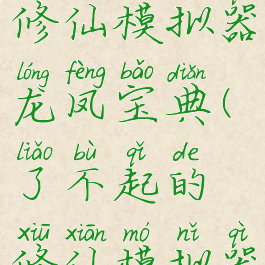 修仙模拟器
lóng fèng bǎo diǎn
龙凤宝典(
liǎo bù qǐ de
了不起的
xiū xiān mó nǐ qì
修仙模拟器